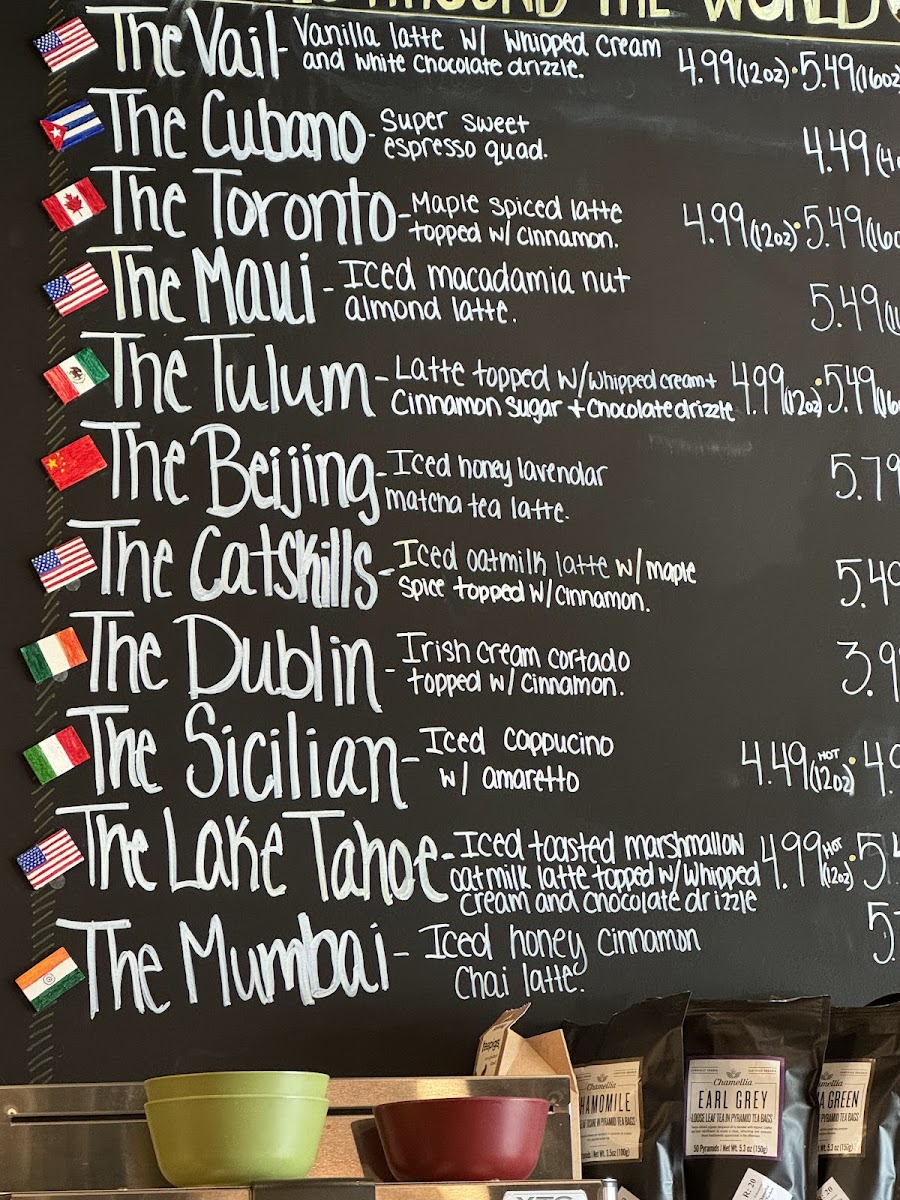 AROUND THE WORLD
The Vail - Vanilla latte w/ whipped cream 4.99 (12oz) • 5.49 (16oz
and white chocolate drizzle.
The Cubano - Super sweet 4.49
espresso quad.
The Toronto - Maple spiced latte 4.99 (12oz) • 5.49
topped w/ cinnamon.
The Maui - Iced macadamia nut 5.49
almond latte.
The Tulum - Latte topped w/ whipped cream + 4.99 (12oz) • 5.49
cinnamon sugar + chocolate drizzle
The Beijing - Iced honey lavendar 5.79
matcha tea latte.
The Catskills - Iced oatmilk latte w/ maple 5.49
spice topped w/ cinnamon.
The Dublin - Irish cream cortado 3.9
topped w/ cinnamon.
The Sicilian - Iced cappucino 4.49 HOT (12oz) •
w/ amaretto
The Lake Tahoe - Iced toasted marshmallow 4.99 HOT (12oz) •
oatmilk latte topped w/ whipped
cream and chocolate drizzle
The Mumbai - Iced honey cinnamon
chai latte.
teapigs
Chamellia
HAMOMILE
Chamellia
EARL GREY
LOOSE LEAF TEA IN PYRAMID TEA BAGS
50 Pyramids | Net Wt. 5.3 oz (150g)
A GREEN
R: 20